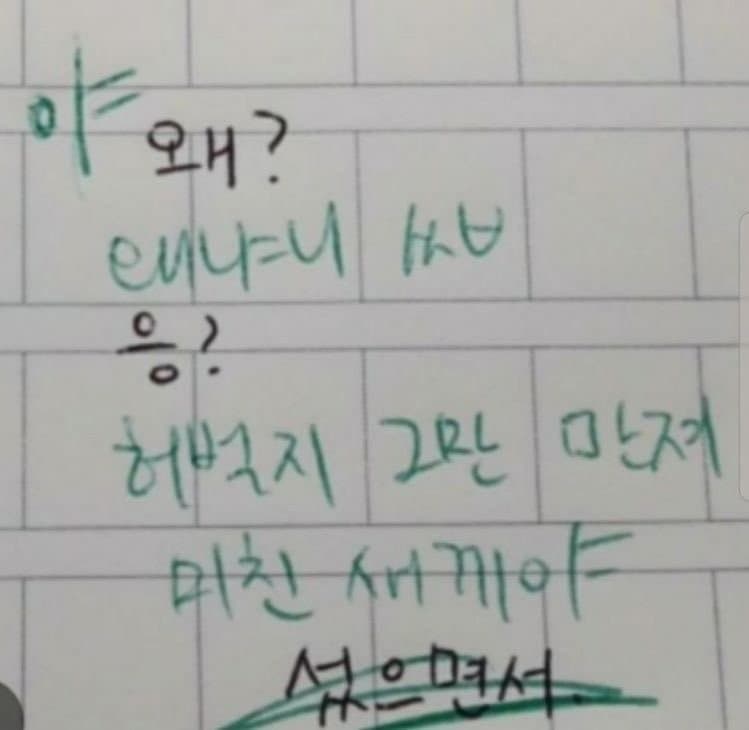 야
왜?
태냐니 씨ㅂ
응?
허벅지 그만 만져
미친 새끼야
섰으면서.